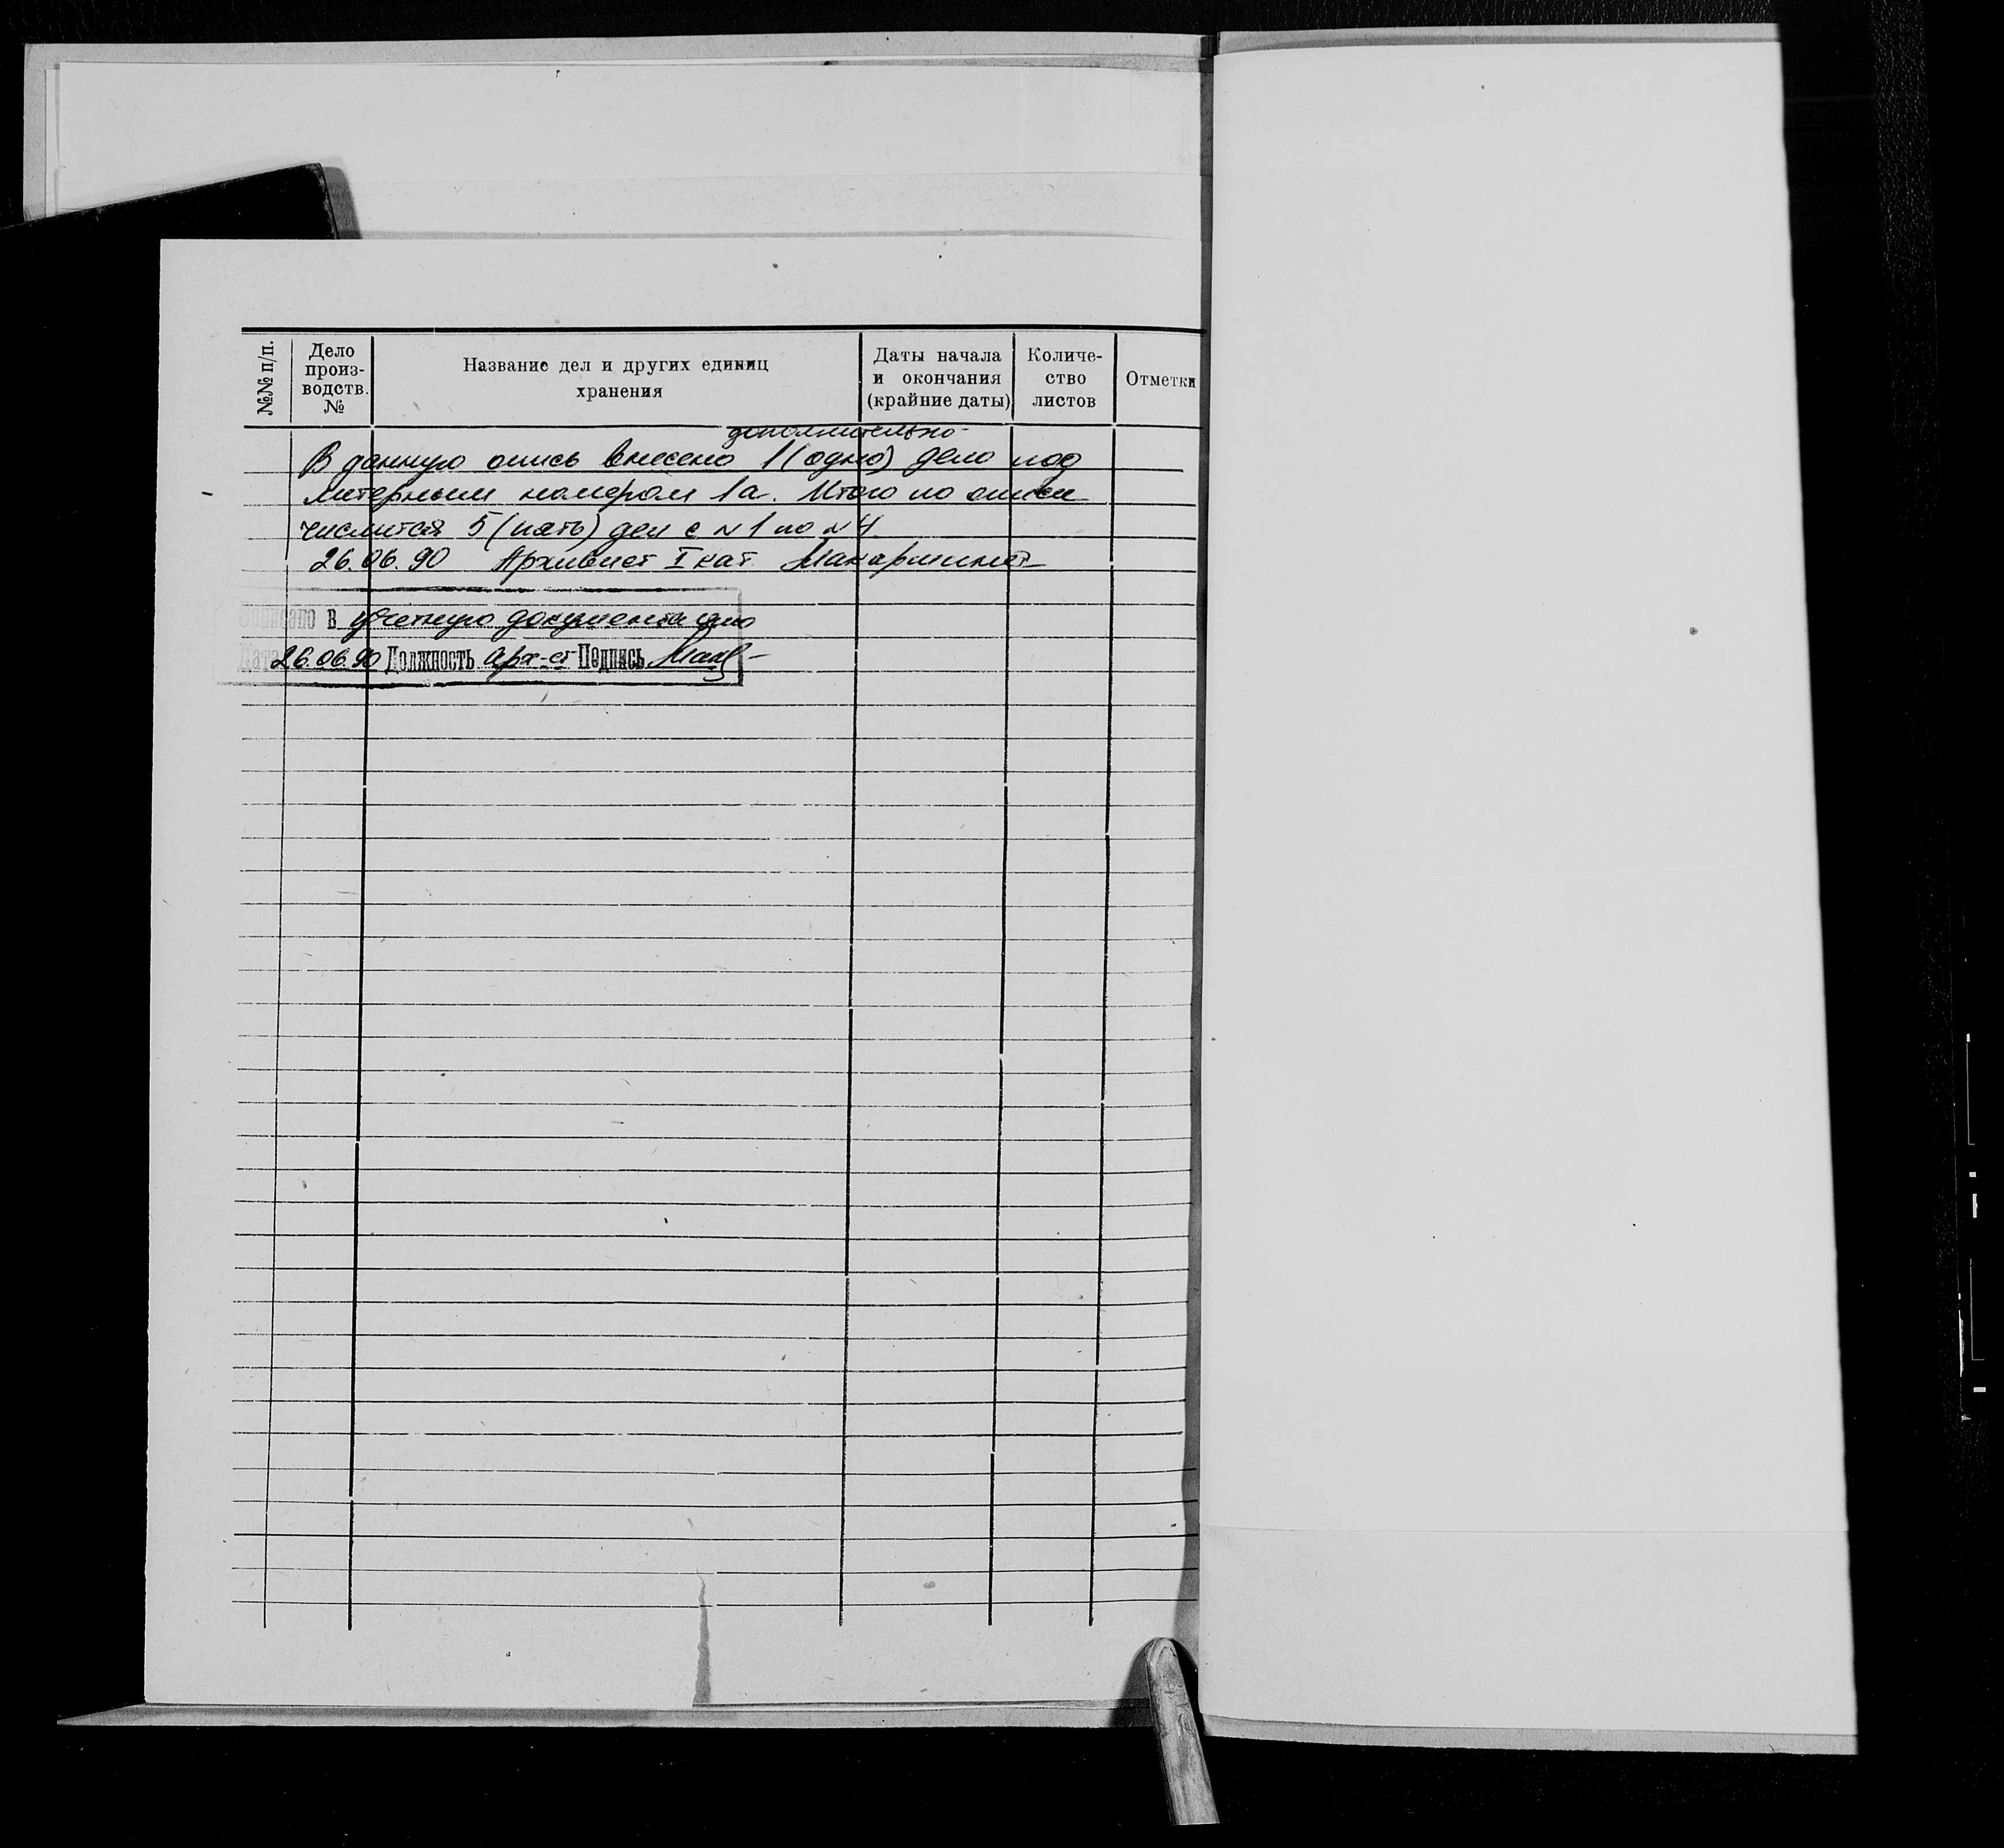 №№ п/п.
Дело
произ-
водств.
№
Название дел и других единиц
хранения
Даты начала
и окончания
(крайние даты)
Количе-
ство
листов
Отметки
дополнительно
В данную опись внесено 1 (одно) дело под
литерным номером 1а. Итого по описи
числится 5 (пять) дел с №1 по №4.
26.06.90 Архивист I кат.
Записано в учетную документацию
Дата 26.06.90 Должность арх-ст Подпись